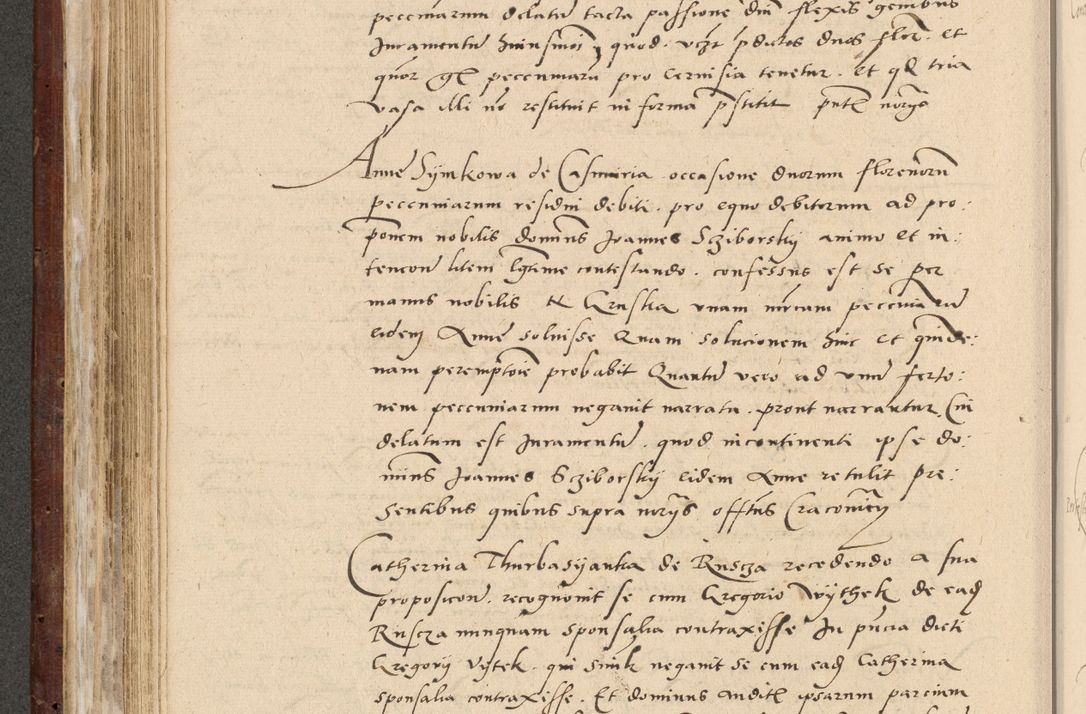 peccuniarum delatum tacta passione dni flexis genibus
Juramentum huiusmoi, quod. vczt pdictos duos flor. et
quor gl peccuniarum pro cervisia tenetur. et qd tria
vasa illi no restituit in forma pstitit pntl norys
Anne Symkowa de Casmiria occasione duorum florenorum
peccuniarum residui debiti. pro equo debitorum ad pro:
ponem nobilis dominus Joannes Scziborsky animo et in:
tencon litem lgtime contestando. confessus est se per
manus nobilis N Kruska unam mrcam peccuniarum
eidem Anne solvisse Quam solucionem hinc et quinde:
nam peremptorie probabit Quantum vero ad unum ferto:
nem peccuniarum negavit narrata. prout narrantur Cui
delatum est Juramentum. quod incontinenti ipse do:
minus Joannes Scziborsky eidem Anne retulit pre:
sentibus quibus supra norys offtus Cracovien
Catherina Thurbasyanka de Ruscza recedendo a sua
proposicon. recognovit se cum Gregorio Wythek de ead
Ruscza nunquam sponsalia contraxisse In pncia dicti
Gregory Vytek. qui simlr negavit se cum ead Catherina
sponsalia contraxisse. Et dominus auditl ipsarum parcium